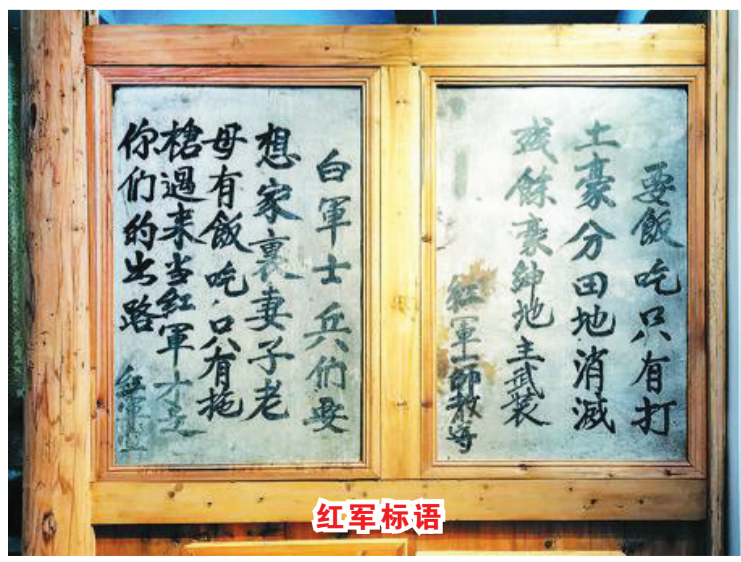 要飯吃只有打
土豪分田地消滅
残餘豪紳地主武装
紅軍一師教
白軍士兵们要
想家裏妻子老
母有飯吃只有拖
槍過来当紅軍才是
你们的出路
紅軍
红军标语